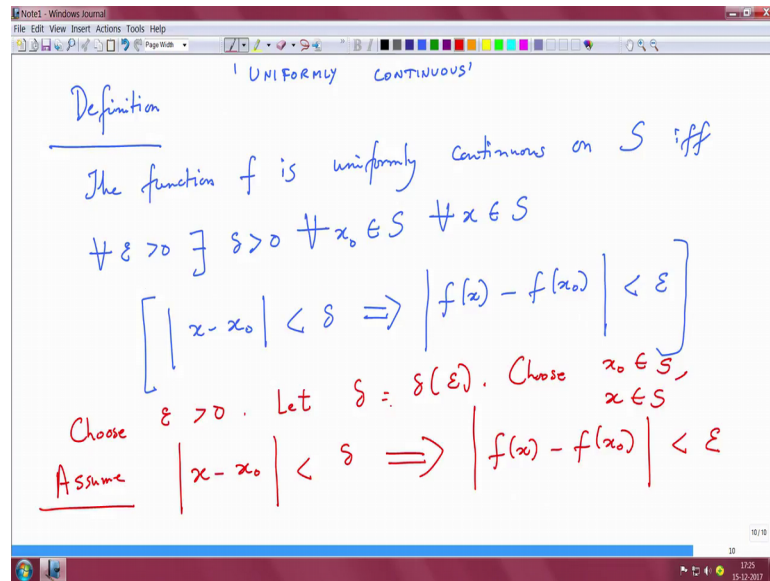 Note1 - Windows Journal
File Edit View Insert Actions Tools Help
Page Width
'UNIFORMLY CONTINUOUS'
Definition
The function f is uniformly continuous on S iff
∀ ε > 0 ∃ δ > 0 ∀ x₀ ∈ S ∀ x ∈ S
[ |x - x₀| < δ ⇒ |f(x) - f(x₀)| < ε ]
Choose ε > 0. Let δ = δ(ε). Choose x₀ ∈ S,
x ∈ S
Assume |x - x₀| < δ ⇒ |f(x) - f(x₀)| < ε
10/10
10
17:25
15-12-2017